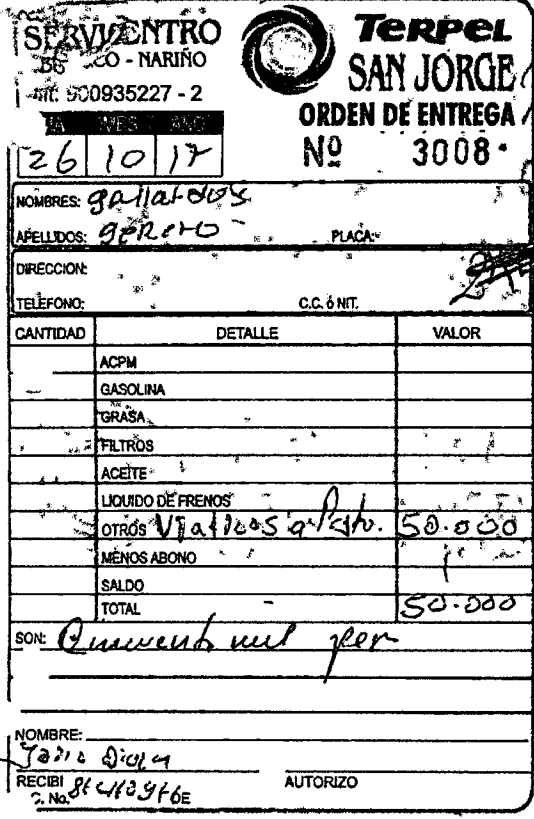 SERVICENTRO
CO - NARIÑO
Nit. 900935227 - 2
Terpel
SAN JORGE
ORDEN DE ENTREGA
Nº 3008
DIA MES AÑO
26 10 17
NOMBRES: gallardos
APELLIDOS: PLACA:
DIRECCION:
TELEFONO: C.C. ó NIT.
CANTIDAD DETALLE VALOR
ACPM
GASOLINA
GRASA
FILTROS
ACEITE
LIQUIDO DE FRENOS
OTROS Viaticos a Pasto. 50.000
MENOS ABONO
SALDO
TOTAL 50.000
SON: Cincuenta mil
NOMBRE:
RECIBI AUTORIZO
C. No. DE